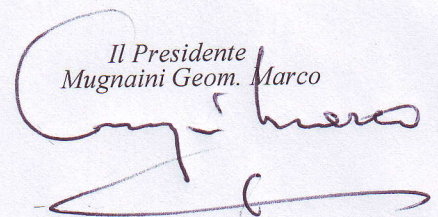 Il Presidente
Mugnaini Geom. Marco